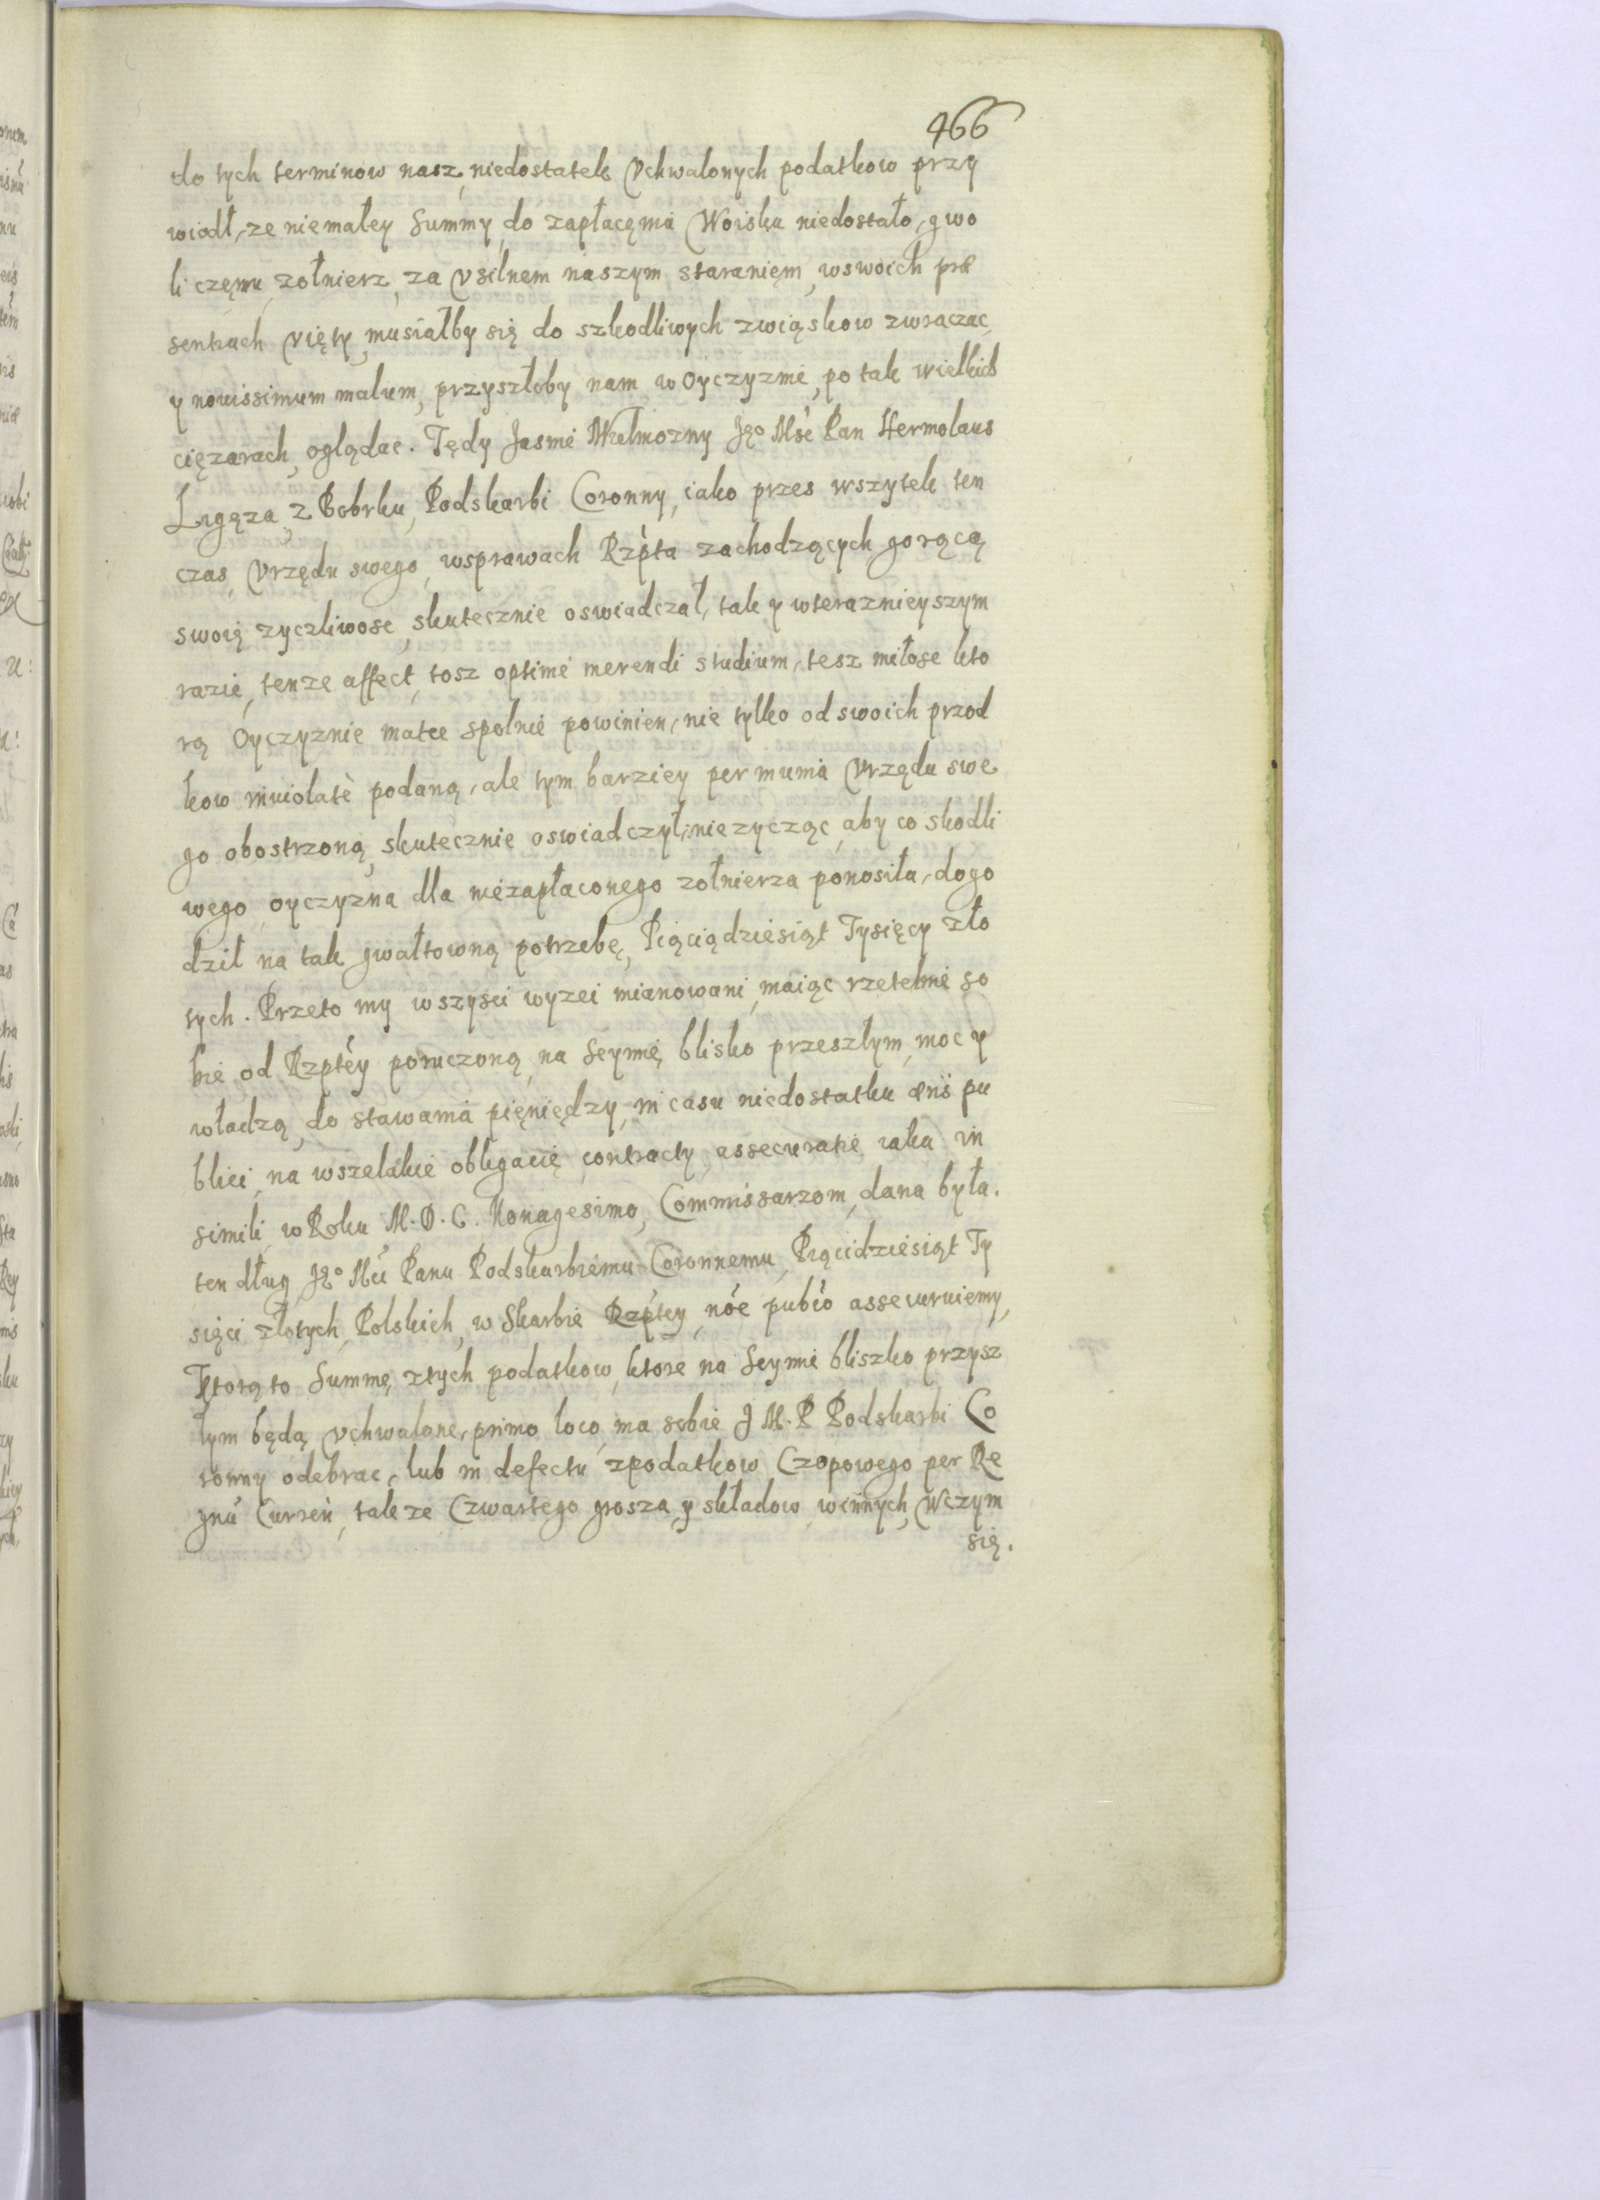 466
do tych terminow nasz, niedostatek Vchwalonych podatkow przy
wiodł, ze niemałey Summy, do zapłacęnia Woiska niedostało, gwo
li częmu, zołnierz, za Vsilnem naszym staranięm, wswoich præ
tensiach Vięty, musiałby się do szkodliwych związkow zwraczac,
y nouissimum malum, przyszłoby nam, w Oyczyznie, po tak wielkich
cięzarach, oglądac. Tędy Jasnie Wielmozny Jęo Msc Pan Hermolaus
Ligęza z Bobrku, Podskarbi Coronny, iako przes wszytek ten
czas, Vrzędu swego, wsprawach Rzpta zachodzących, gorącą
swoię zyczliwosc, skutecznie oswiadczał, tak y wteraznieyszym
razie, tenze affect, tosz optime merendi studium, tesz miłosc kto
rą Oyczyznie matce spolnie powinien, nie tylko od swoich przod
kow inuiolatè podaną, ale tym barziey per munia Vrzędu swe
go obostrzoną, skutecznie oswiadczył, niezycząc, aby co skodli
wego oyczyzna dla niezapłaconego zołnierza ponosiła, dogo
dził na tak gwałtowną potrzebę, Pięciądziesiąt Tysięcy zło
tych. Przeto my wszysci wyzei mianowani, maiąc rzetelnie so
bie, od Rzptéy poruczoną, na Seymie, blisko przeszłym, moc y
władzą, do stawania pięniędzy, in casu niedostatku æris pu
blici, na wszelakie obligacię, contracty, assecuratie iaka in
simili, w Roku M.D.C. Nonagesimo, Commissarzom, dana była.
ten dług, Jęo Mci Panu Podskarbiemu Coronnemu, Pięcidziesiąt Ty
sięci złotych, Polskich, w Skarbie Rzptey, nóe pubco assecuruiemy,
Ktorą to Summę, ztych podatkow, ktore na Seymie bliszko przysz
łym będą Vchwalone, primo loco, ma sobie J M. P Podskarbi Co
ronny odebrac, lub in defectu zpodatkow Czopowego per Re
gnú Curreń, takze Czwartego grosza, y składow winnych, Wczym
się.